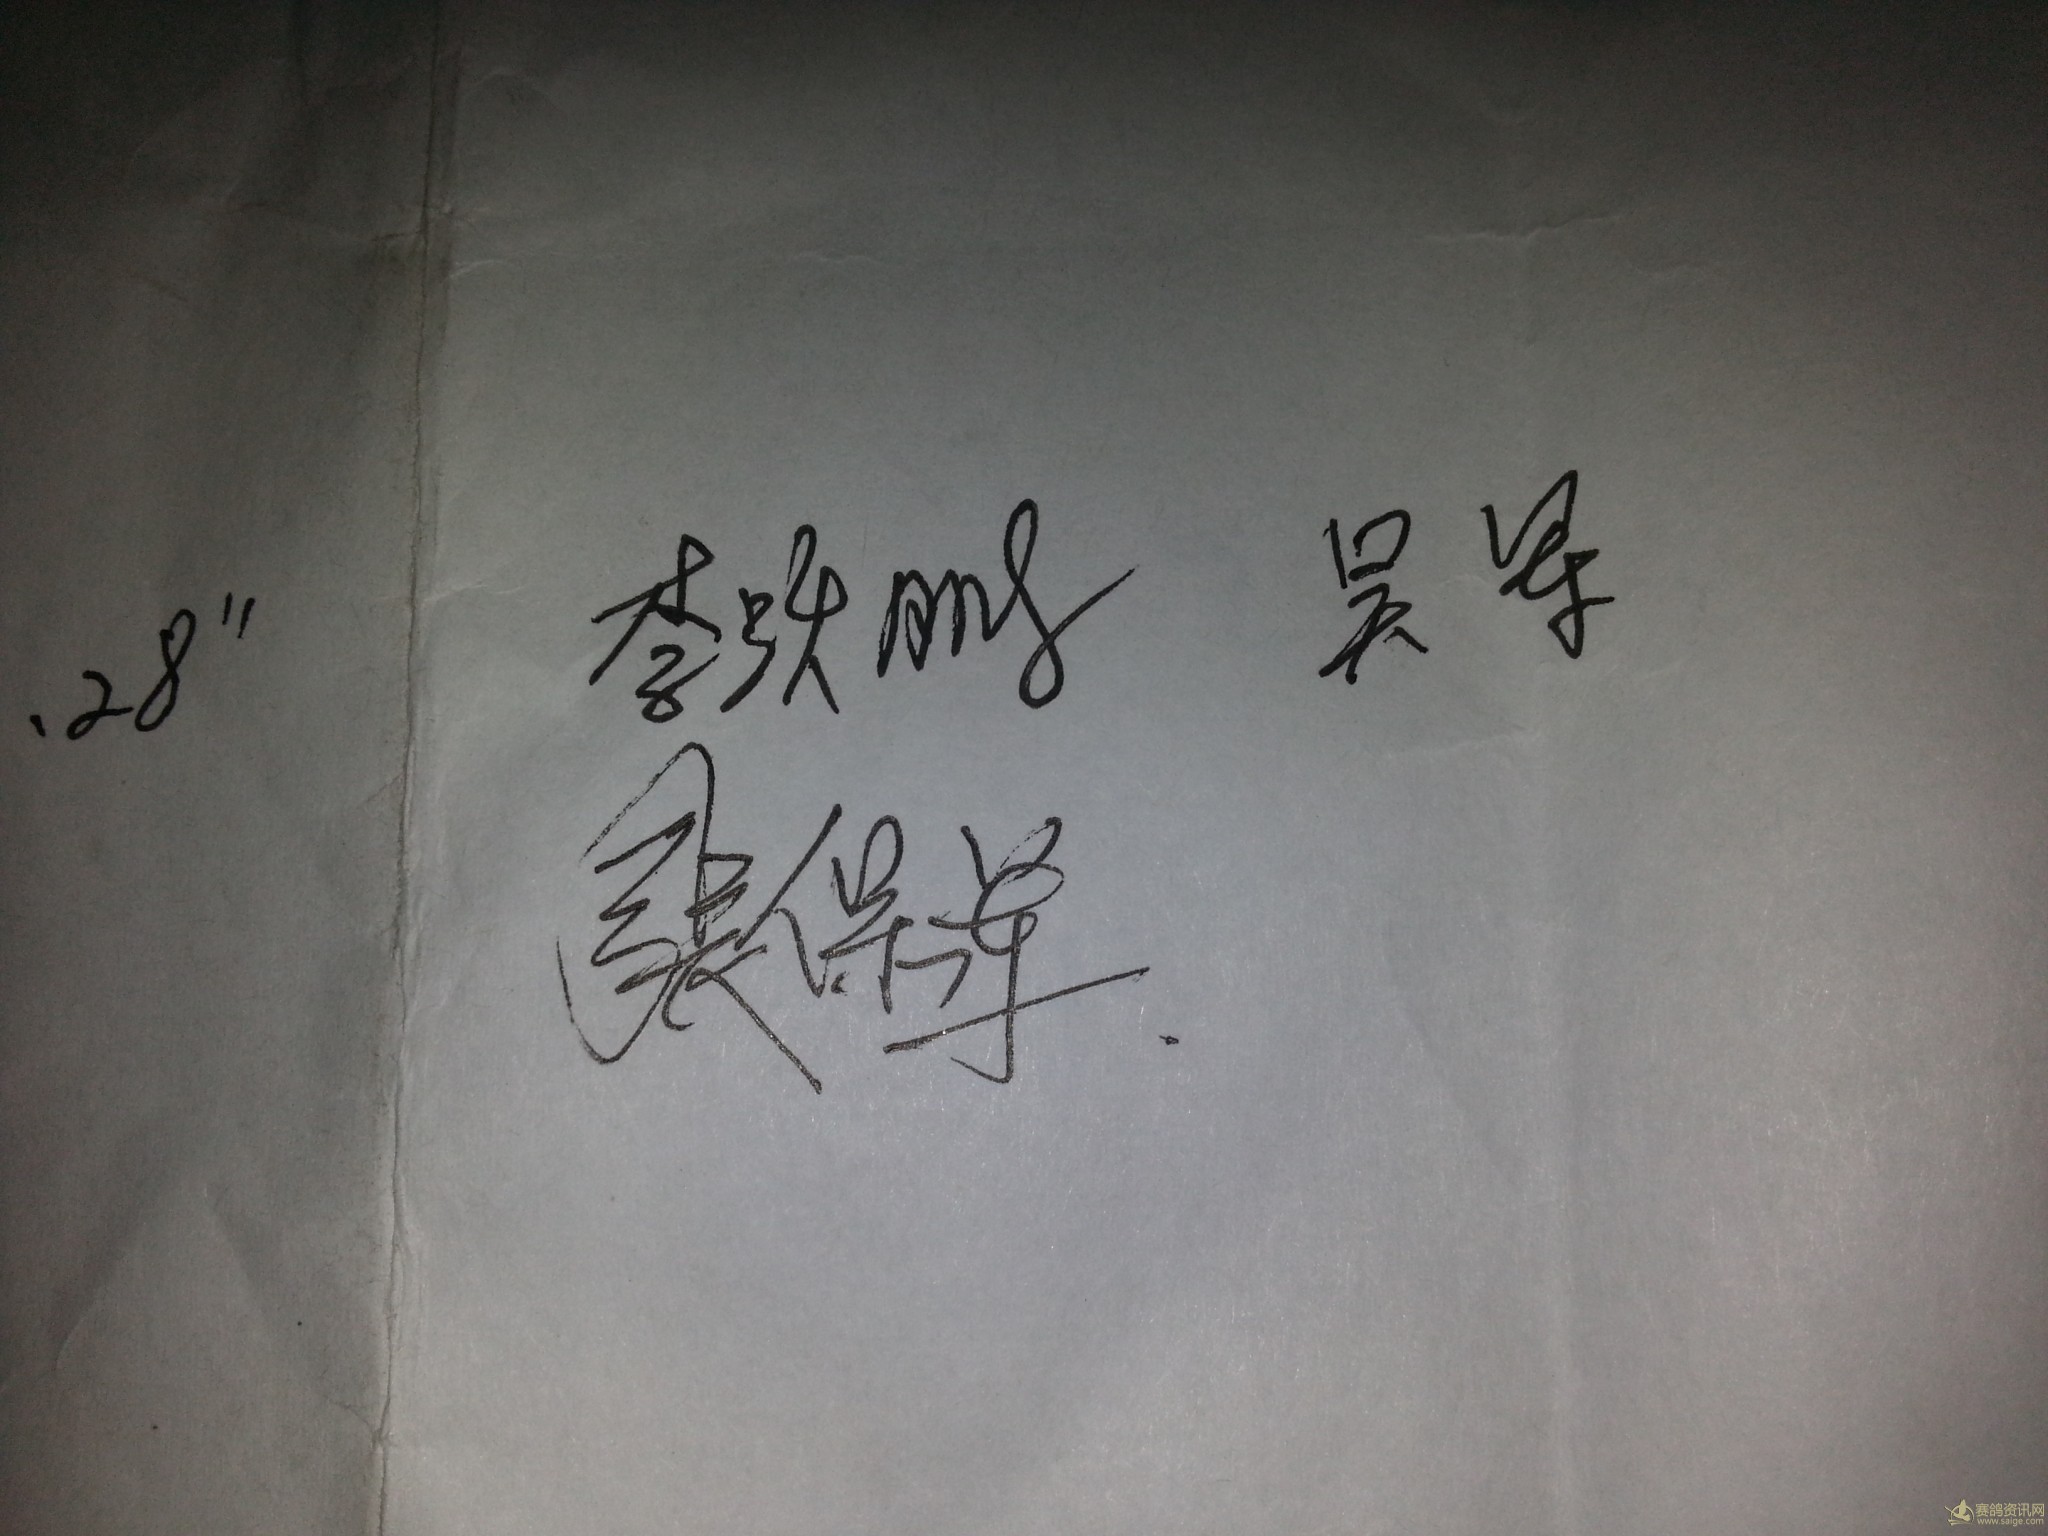 .28" 李跃鹏 吴军
张保军.
赛鸽资讯网
www.saige.com